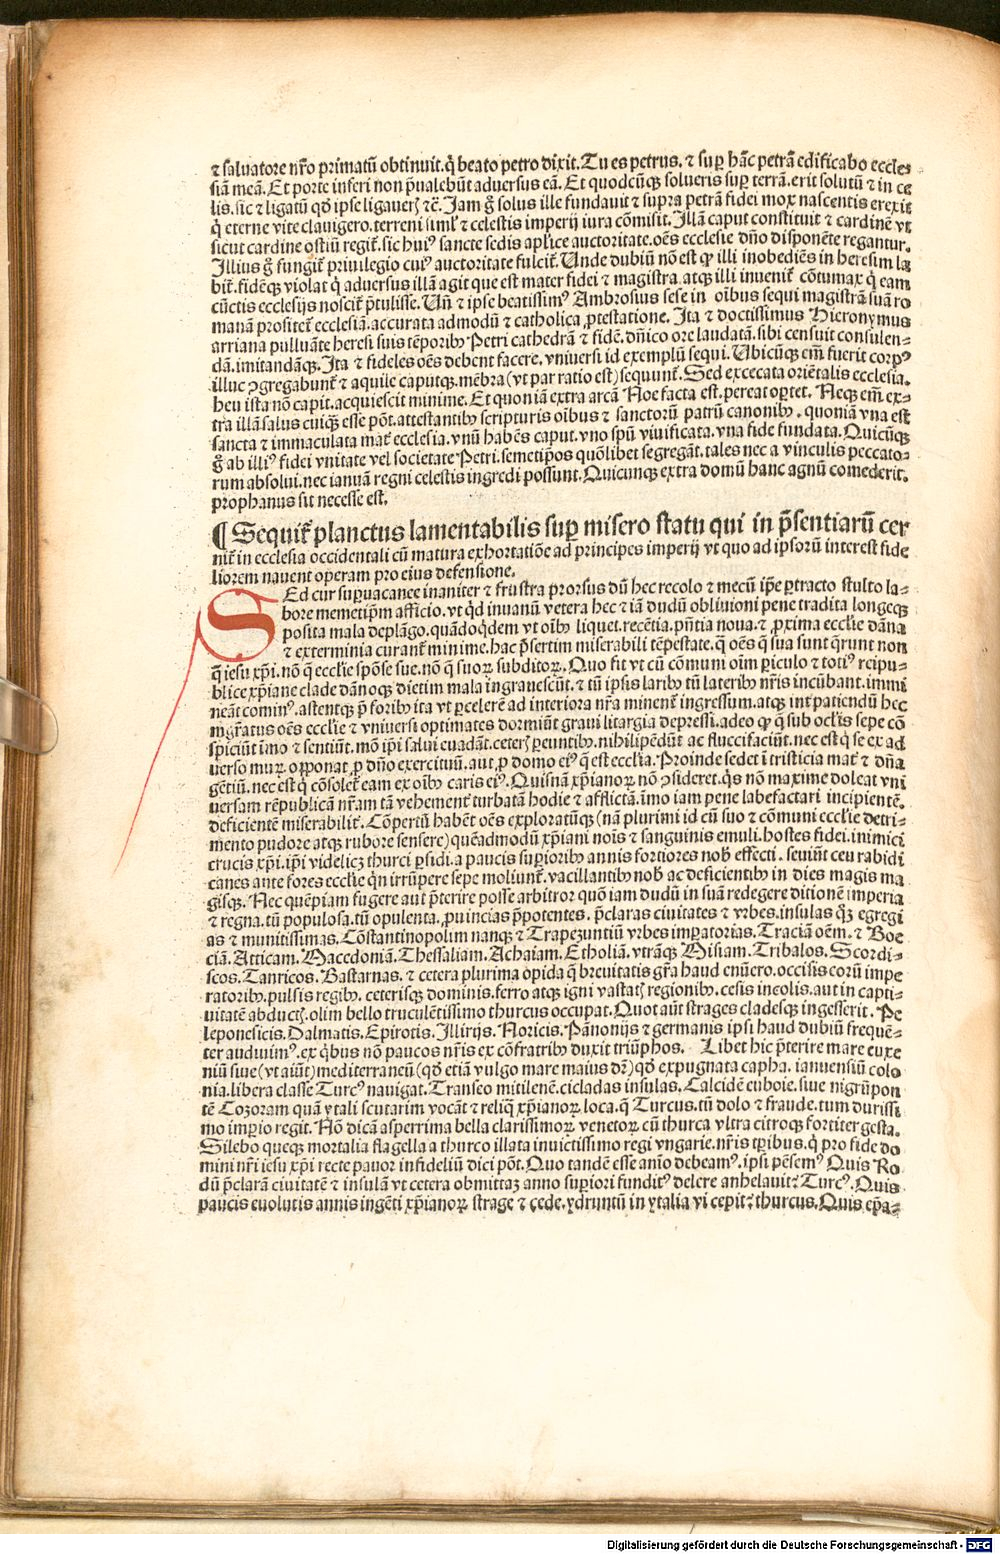 ⁊ saluatore nr̄o primatū obtinuit. q̇ beato petro dixit. Tu es petrus. ⁊ suꝑ hāc petrā edificabo eccle⸗
siā meā. Et porte inferi non p̄ualebūt aduersus eā. Et quodcūqꝫ solueris suꝑ terrā. erit solutū ⁊ in ce
lis. sic ⁊ ligatū qd̄ ipse ligaueris ⁊c̄. Jam g̊ solus ille fundauit ⁊ supra petrā fidei mox nascentis erexit
q̇ eterne vite clauigero. terreni siml̓ ⁊ celestis imperij iura cōmisit. Illā caput constituit ⁊ cardinē vt
sicut cardine ostiū regit̃. sic huiꝰ sancte sedis apl̓ice auctoritate. oēs ecclesie dn̄o disponēte regantur.
Illius g̊ fungit̃ priuilegio cuiꝰ auctoritate fulcit̃. Unde dubiū nō est ꝙ illi inobediēs in heresim la
bit̃. fidēqꝫ violat q̇ aduersus illā agit que est mater fidei ⁊ magistra. atqꝫ illi inuenit̃ cōtumax q̇ eam
cūctis ecclesijs noscit̃ p̄tulisse. Un̄ ⁊ ipse beatissimꝰ Ambrosius sese in oībus sequi magistrā suā ro
manā profitet̃ ecclesiā. accurata admodū ⁊ catholica ꝓtestatione. Ita ⁊ doctissimus Hieronymus
arriana pulluāte heresi suis tēporibꝰ Petri cathedrā ⁊ fidē. dn̄ico ore laudatā. sibi censuit consulen⸗
dā. imitandāqꝫ. Ita ⁊ fideles oēs debent facere. vniuersi id exemplū sequi. Ubicūqꝫ em̄ fuerit corpꝰ
illuc ꝯgregabunt̃ ⁊ aquile caputqꝫ. mēbra (vt par ratio est) sequunt̃. Sed excecata oriētalis ecclesia.
heu ista nō capit. acquiescit minime. Et quoniā extra arcā Noe facta est. pereat oꝑtet. Neqꝫ em̄ ex⸗
tra illā salus cuiqꝫ esse pōt. attestantibꝰ scripturis oībus ⁊ sanctorū patrū canonibꝰ. quoniā vna est
sancta ⁊ immaculata mat̃ ecclesia. vnū habēs caput. vno spū viuificata. vna fide fundata. Quicūqꝫ
g̊ ab illiꝰ fidei vnitate vel societate Petri. semetip̄os quōlibet segregāt. tales nec a vinculis peccato⸗
rum absolui. nec ianuā regni celestis ingredi possunt. Quicunqꝫ extra domū hanc agnū comederit.
prophanus sit necesse est.
¶ Sequit̃ planctus lamentabilis suꝑ misero statu qui in p̄sentiarū cer
nit̃ in ecclesia occidentali cū matura exhortatiōe ad principes imperij vt quo ad ipsorū interest fide
liorem nauent operam pro eius defensione.
SEd cur suꝑuacanee inaniter ⁊ frustra prorsus dū hec recolo ⁊ mecū ip̄e ꝑtracto stulto la⸗
bore memetip̄m afficio. vt qd̓ inuanū vetera hec ⁊ iā dudū obliuioni pene tradita longeqꝫ
posita mala deplāgo. quādoq̇dem vt oībꝰ liquet. recētia. p̄ntia noua. ⁊ ꝓxima eccl̓ie dāna
⁊ exterminia curant̃ minime. hac p̄sertim miserabili tēpestate. q̄ oēs q̄ sua sunt q̄runt non
q̄ iesu xp̄i. nō q̄ eccl̓ie spōse sue. nō q̄ suoꝝ subditoꝝ. Quo fit vt cū cōmuni oīm ꝑiculo ⁊ totiꝰ reipu⸗
blice xp̄iane clade dānoqꝫ dietim mala ingrauescūt. ⁊ tū ipsis laribꝰ tū lateribꝰ nr̄is incūbant. immi
neāt cominꝰ. astentqꝫ p̄ foribꝰ ita vt ꝑcelerē ad interiora nr̄a minent̃ ingressum. atqꝫ int̃ patiendū hec
mḡratus oēs eccl̓ie ⁊ vniuersi optimates dormiūt graui litargia depressi. adeo ꝙ q̄ sub ocl̓is sepe cō
spiciūt īmo ⁊ sentiūt. mō ip̄i salui euadāt. ceteris ꝑeuntibꝰ. nihilipēdūt ac fluccifaciūt. nec est q̇ se ex ad
uerso muꝝ opponat ꝓ dn̄o exercituū. aut ꝓ domo eiꝰ q̄ est eccl̓ia. Proinde sedet ī tristicia mat̃ ⁊ dn̄a
gētiū. nec est q̇ cōsolet̃ eam ex oībꝰ caris eiꝰ. Quisnā xp̄ianoꝝ nō ꝯsideret. q̇s nō maxime doleat vni
uersam rēpublicā nr̄am tā vehement̃ turbatā hodie ⁊ afflictā. īmo iam pene labefactari incipientē.
deficientē miserabilit̃. Cōpertū habēt oēs exploratūqꝫ (nā plurimi id cū suo ⁊ cōmuni eccl̓ie detri⸗
mento pudore atqꝫ rubore sensere) quēadmodū xp̄iani noīs ⁊ sanguinis emuli. hostes fidei. inimici
crucis xp̄i. ip̄i videlicꝫ thurci ꝑfidi. a paucis suꝑioribꝰ annis fortiores nobis effecti. seuiūt ceu rabidi
canes ante fores eccl̓ie q̇n irrūpere sepe moliunt̃. vacillantibꝰ nobis ac deficientibꝰ in dies magis ma
gisqꝫ. Nec quēpiam fugere aut p̄terire posse arbitror quō iam dudū in suā redegere ditionē imperia
⁊ regna. tū populosa. tū opulenta. ꝓuincias p̄potentes. p̄claras ciuitates ⁊ vrbes. insulas q̄ꝫ egregi
as ⁊ munitissimas. Cōstantinopolim nanqꝫ ⁊ Trapezuntiū vrbes imꝑatorias. Traciā oēm. ⁊ Boe
ciā. Atticam. Macedoniā. Thessaliam. Achaiam. Etholiā. vtrāqꝫ Misiam. Tribalos. Scordi⸗
scos. Tanricos. Bastarnas. ⁊ cetera plurima opida q̄ breuitatis gr̄a haud enūero. occisis eorū impe
ratoribꝰ. pulsis regibꝰ. ceterisqꝫ dominis. ferro atqꝫ igni vastatis regionibꝰ. cesis incolis. aut in capti⸗
uitatē abductis. olim bello truculētissimo thurcus occupat. Quot aūt strages cladesqꝫ ingesserit. Pe
leponesicis. Dalmatis. Epirotis. Illirijs. Noricis. Pānonijs ⁊ germanis ipsi haud dubiū frequē⸗
ter audiuimꝰ. ex q̇bus nō paucos nr̄is ex cōfratribꝰ duxit triūphos. Libet hic p̄terire mare euxe
niū siue (vt aiūt) mediterraneū (qd̄ etiā vulgo mare maius dr̄) qd̄ expugnata capha. ianuensiū colo
nia. libera classe Turcꝰ nauigat. Transeo mitilenē. cicladas insulas. Calcidē euboie. siue nigrūpon
tē Cozoram quā ytali scutarim vocāt ⁊ reliq̄ xp̄ianoꝝ loca. q̄ Turcus. tū dolo ⁊ fraude. tum durissi
mo imꝑio regit. Nō dicā asperrima bella clarissimoꝝ venetoꝝ cū thurca vltra citroqꝫ fortiter gesta.
Silebo queqꝫ mortalia flagella a thurco illata inuictissimo regi vngarie. nr̄is tꝑibus. q̇ pro fide do
mini nr̄i iesu xp̄i recte pauor infideliū dici pōt. Quo tandē esse anīo debeamꝰ. ipsi pēsemꝰ Quis Ro
dū p̄clarā ciuitatē ⁊ insulā vt cetera obmittaꝫ anno suꝑiori funditꝰ delere anhelauit? Turcꝰ. Quis
paucis euolutis annis ingēti xp̄ianoꝝ strage ⁊ cede. ydruntū in ytalia vi cepit? thurcus. Quis ep̄a⸗
Digitalisierung gefördert durch die Deutsche Forschungsgemeinschaft - DFG